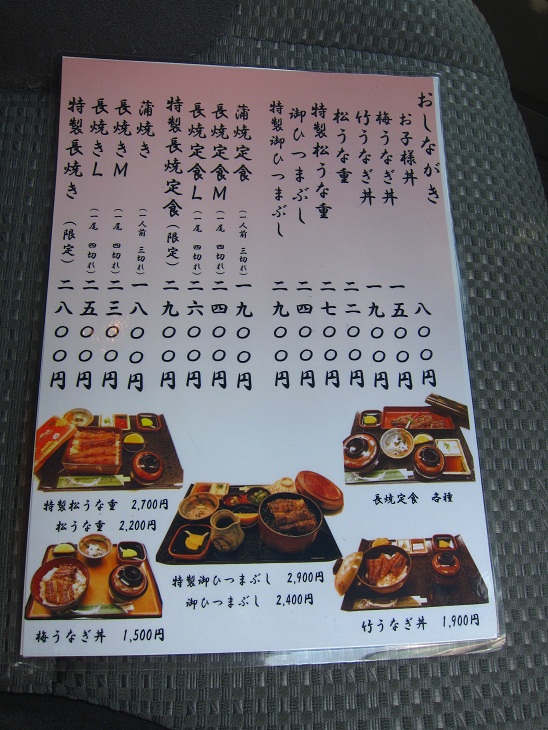 おしながき
お子様丼 八〇〇円
梅うなぎ丼 一五〇〇円
竹うなぎ丼 一九〇〇円
松うな重 二二〇〇円
特製松うな重 二七〇〇円
御ひつまぶし 二四〇〇円
特製御ひつまぶし 二九〇〇円
蒲焼定食 (一人前 三切れ) 一九〇〇円
長焼定食M (一尾 四切れ) 二四〇〇円
長焼定食L (一尾 四切れ) 二六〇〇円
特製長焼定食 (限定) 二九〇〇円
蒲焼き (一人前 三切れ) 一八〇〇円
長焼きM (一尾 四切れ) 二三〇〇円
長焼きL (一尾 四切れ) 二五〇〇円
特製長焼き (限定) 二八〇〇円
特製松うな重 2,700円
松うな重 2,200円
長焼定食 各種
特製御ひつまぶし 2,900円
御ひつまぶし 2,400円
梅うなぎ丼 1,500円
竹うなぎ丼 1,900円